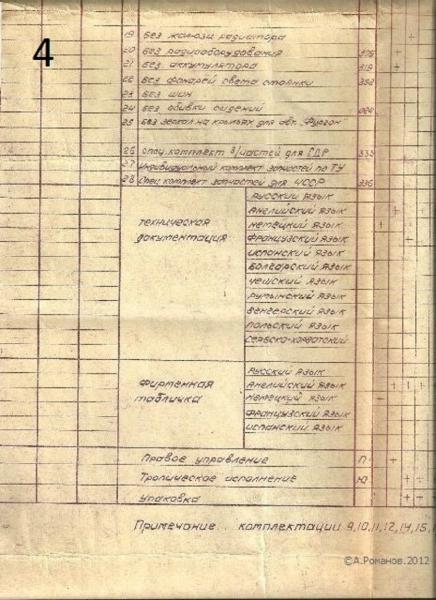 4
19 без жалюзи радиатора
20 без радиооборудования
21 без аккумулятора 319
22 без фонарей света стоянки
23 без шин
24 без обивки сидений
25 без зеркал на крыльях для авт. Фургон
26 спец. комплект з/частей для ГДР 335
27 Индивидуальный комплект запчастей по ТУ
28 Спец. комплект запчастей для ЧССР 336
техническая документация
русский язык
английский язык
немецкий язык
французский язык
испанский язык
болгарский язык
чешский язык
румынский язык
венгерский язык
польский язык
сербско-хорватский
Фирменная табличка
русский язык
английский язык
немецкий язык
французский язык
испанский язык
Правое управление П
Тропическое исполнение Ю
Упаковка
Примечание... комплектации 9,10,11,12,14,15,
©А.Романов.2012